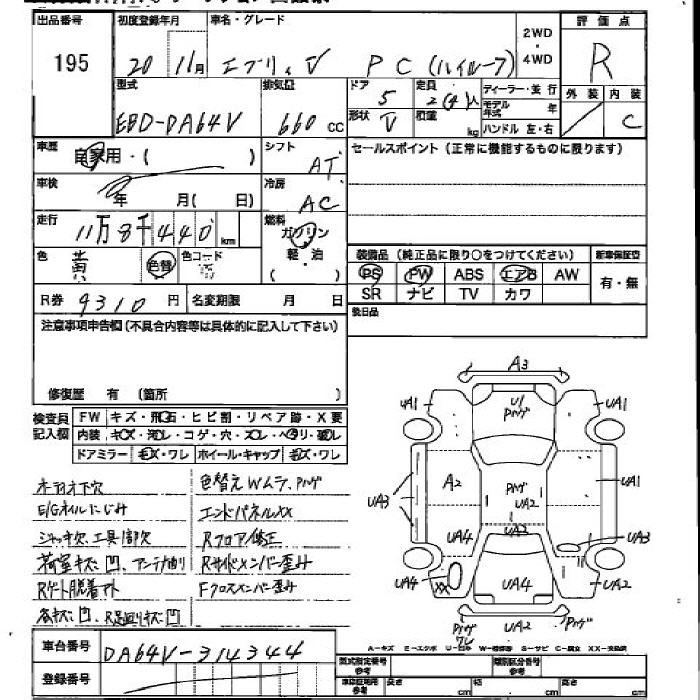 出品番号 初度登録年月 車名・グレード 2WD ・ 4WD 評価点
195 20 11月 エブリィV PC (ハイルーフ) R
型式 排気量 ドア 定員 ディーラー・並行 外装 内装
EBD-DA64V 660 cc 5 2(4)人 モデル年式 年 C
形状 V 積載 kg ハンドル 左・右
車歴 自家用・( ) シフト AT セールスポイント (正常に機能するものに限ります)
車検 年 月( 日) 冷房 AC
走行 11万8千440 km 燃料 ガソリン 軽・油 ( )
色 黄 色替 色コード
装備品 (純正品に限り○をつけてください) 新車保証書
PS PW ABS エアB AW 有・無
SR ナビ TV カワ
R券 9310 円 名変期限 月 日
後日品
注意事項申告欄 (不具合内容等は具体的に記入して下さい)
修復歴 有 (箇所 )
検査員記入欄 FW キズ・飛石・ヒビ割・リペア跡・X要
内装 キズ・汚レ・コゲ・穴・スレ・ヘタリ・破レ
ドアミラー キズ・ワレ ホイール・キャップ キズ・ワレ
色替えWムラ、ハゲ
E/Gオイルにじみ エンドパネルXX
ジャッキ欠、工具1部欠 Rフロア修正
荷室キズ凹、アンテナ曲り Rサイドメンバー歪み
Rゲート脱着アト Fクロスメンバー歪み
各キズ凹、R足回りキズ凹
A3
UA1 U1 ハゲ UA1
A2 ハゲ UA2 UA1
UA3 UA4 UA2 UA3
UA4 XX UA4 UA2
ハゲ ワレ UA2 ハゲ
A-キズ E-エクボ U-凹み W-補修跡 S-サビ C-腐食 XX-交換済
車台番号 DA64V-314344
登録番号
型式指定番号 参考 類別区分番号 参考
車体証明用 参考 長さ cm 幅 cm 高さ cm